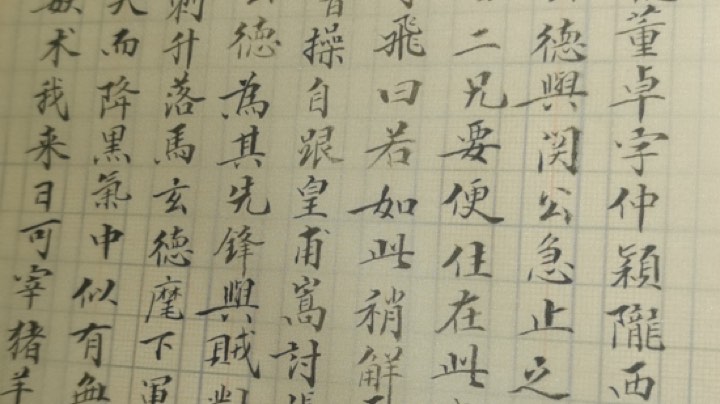 董卓字仲穎隴西
德與関公急止之
二兄要便住在此
飛曰若如此稍解
操自跟皇甫嵩討
德為其先鋒與賊對
刺升落馬玄德麾下軍
而降黑氣中似有無
术我来日可宰猪羊